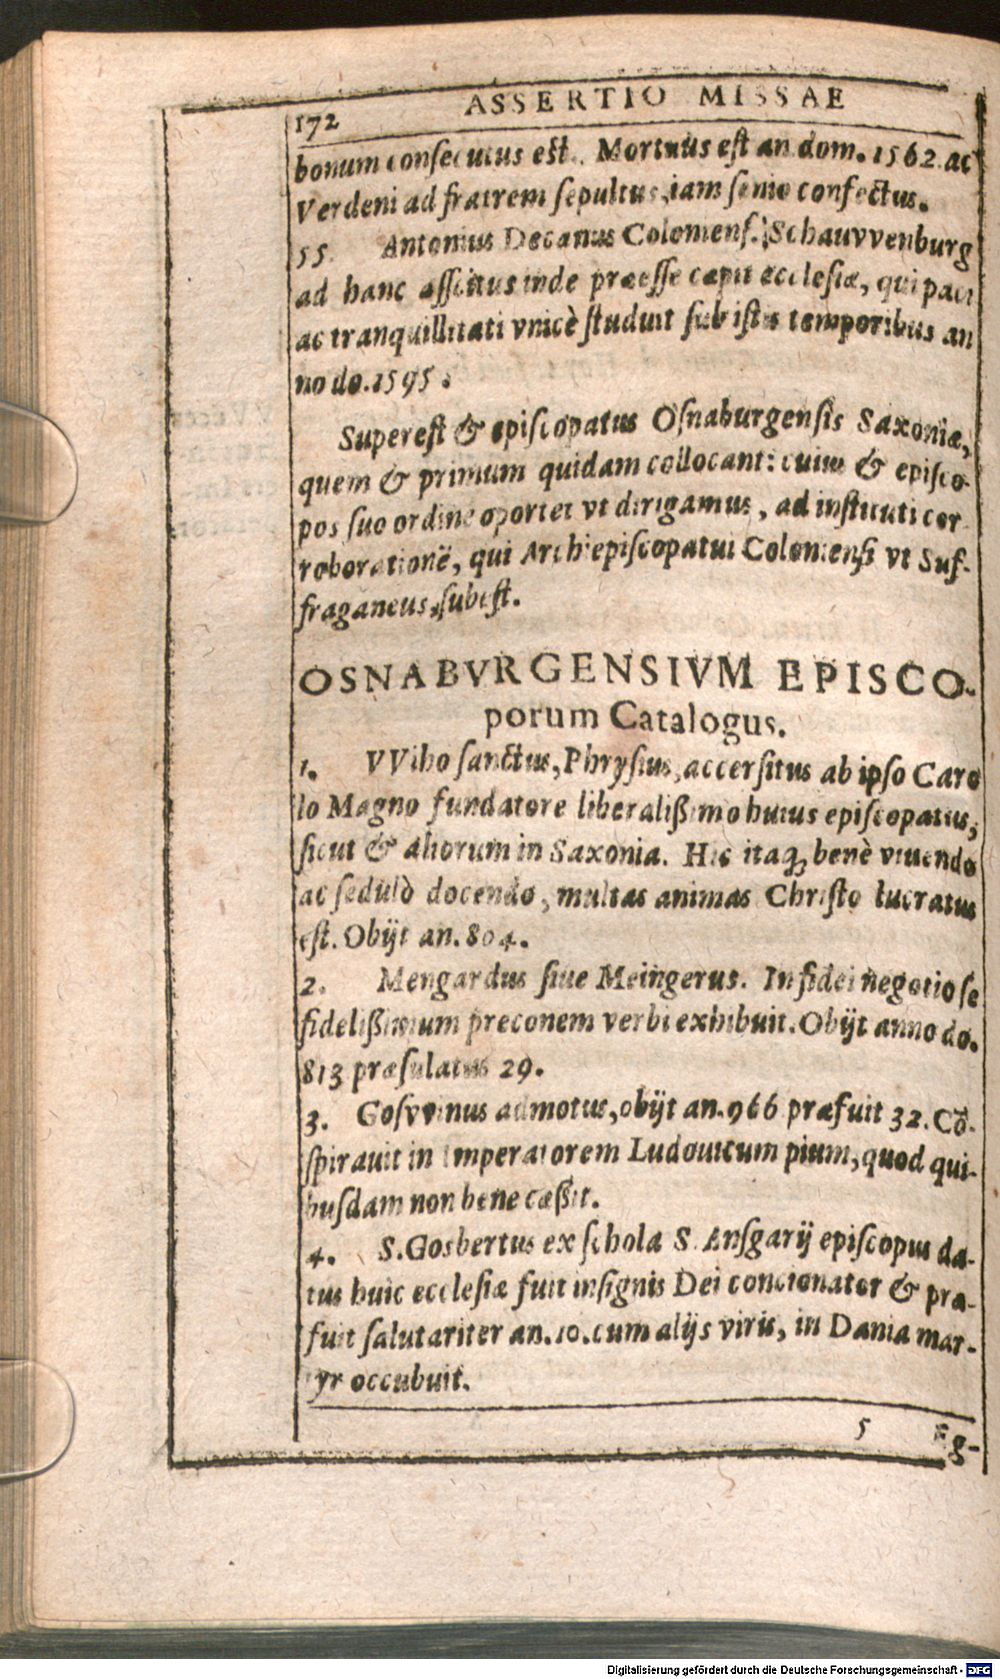 172 ASSERTIO MISSAE
bonum consecutus est. Mortuus est an dom. 1562. ac
Verdeni ad fratrem sepultus, iam senio confectus.
55. Antonius Decanus Coloniens. Schauvvenburg
ad hanc asscitus inde præesse cæpit ecclesiæ, qui paci
ac tranquillitati vnicè studuit sub istis temporibus an
no do. 1595.
Superest & episcopatus Osnaburgensis Saxoniæ,
quem & primum quidam collocant: cuius & episco-
pos suo ordine oportet vt dirigamus, ad instituti cor
roborationē, qui Archiepiscopatui Coloniensi vt Suf-
fraganeus, subest.
OSNABVRGENSIVM EPISCO-
porum Catalogus.
1. VViho sanctus, Phrysius, accersitus ab ipso Caro
lo Magno fundatore liberalißimo huius episcopatus,
sicut & aliorum in Saxonia. Hic itaq; benè viuendo
ac sedulò docendo, multas animas Christo lucratus
est. Obijt an. 804.
2. Mengardus siue Meingerus. In fidei negotio se
fidelißimum preconem verbi exhibuit. Obijt anno do.
813 præsulatus 29.
3. Gosvvinus admotus, obijt an. 966 præfuit 32. Cō-
spirauit in Imperatorem Ludouicum pium, quod qui-
busdam non bene cæßit.
4. S. Gosbertus ex schola S. Ansgarij episcopus da-
tus huic ecclesiæ fuit insignis Dei concionator & præ-
fuit salutariter an. 10. cum alijs viris, in Dania mar-
tyr occubuit.
5 Eg-
Digitalisierung gefördert durch die Deutsche Forschungsgemeinschaft - DFG